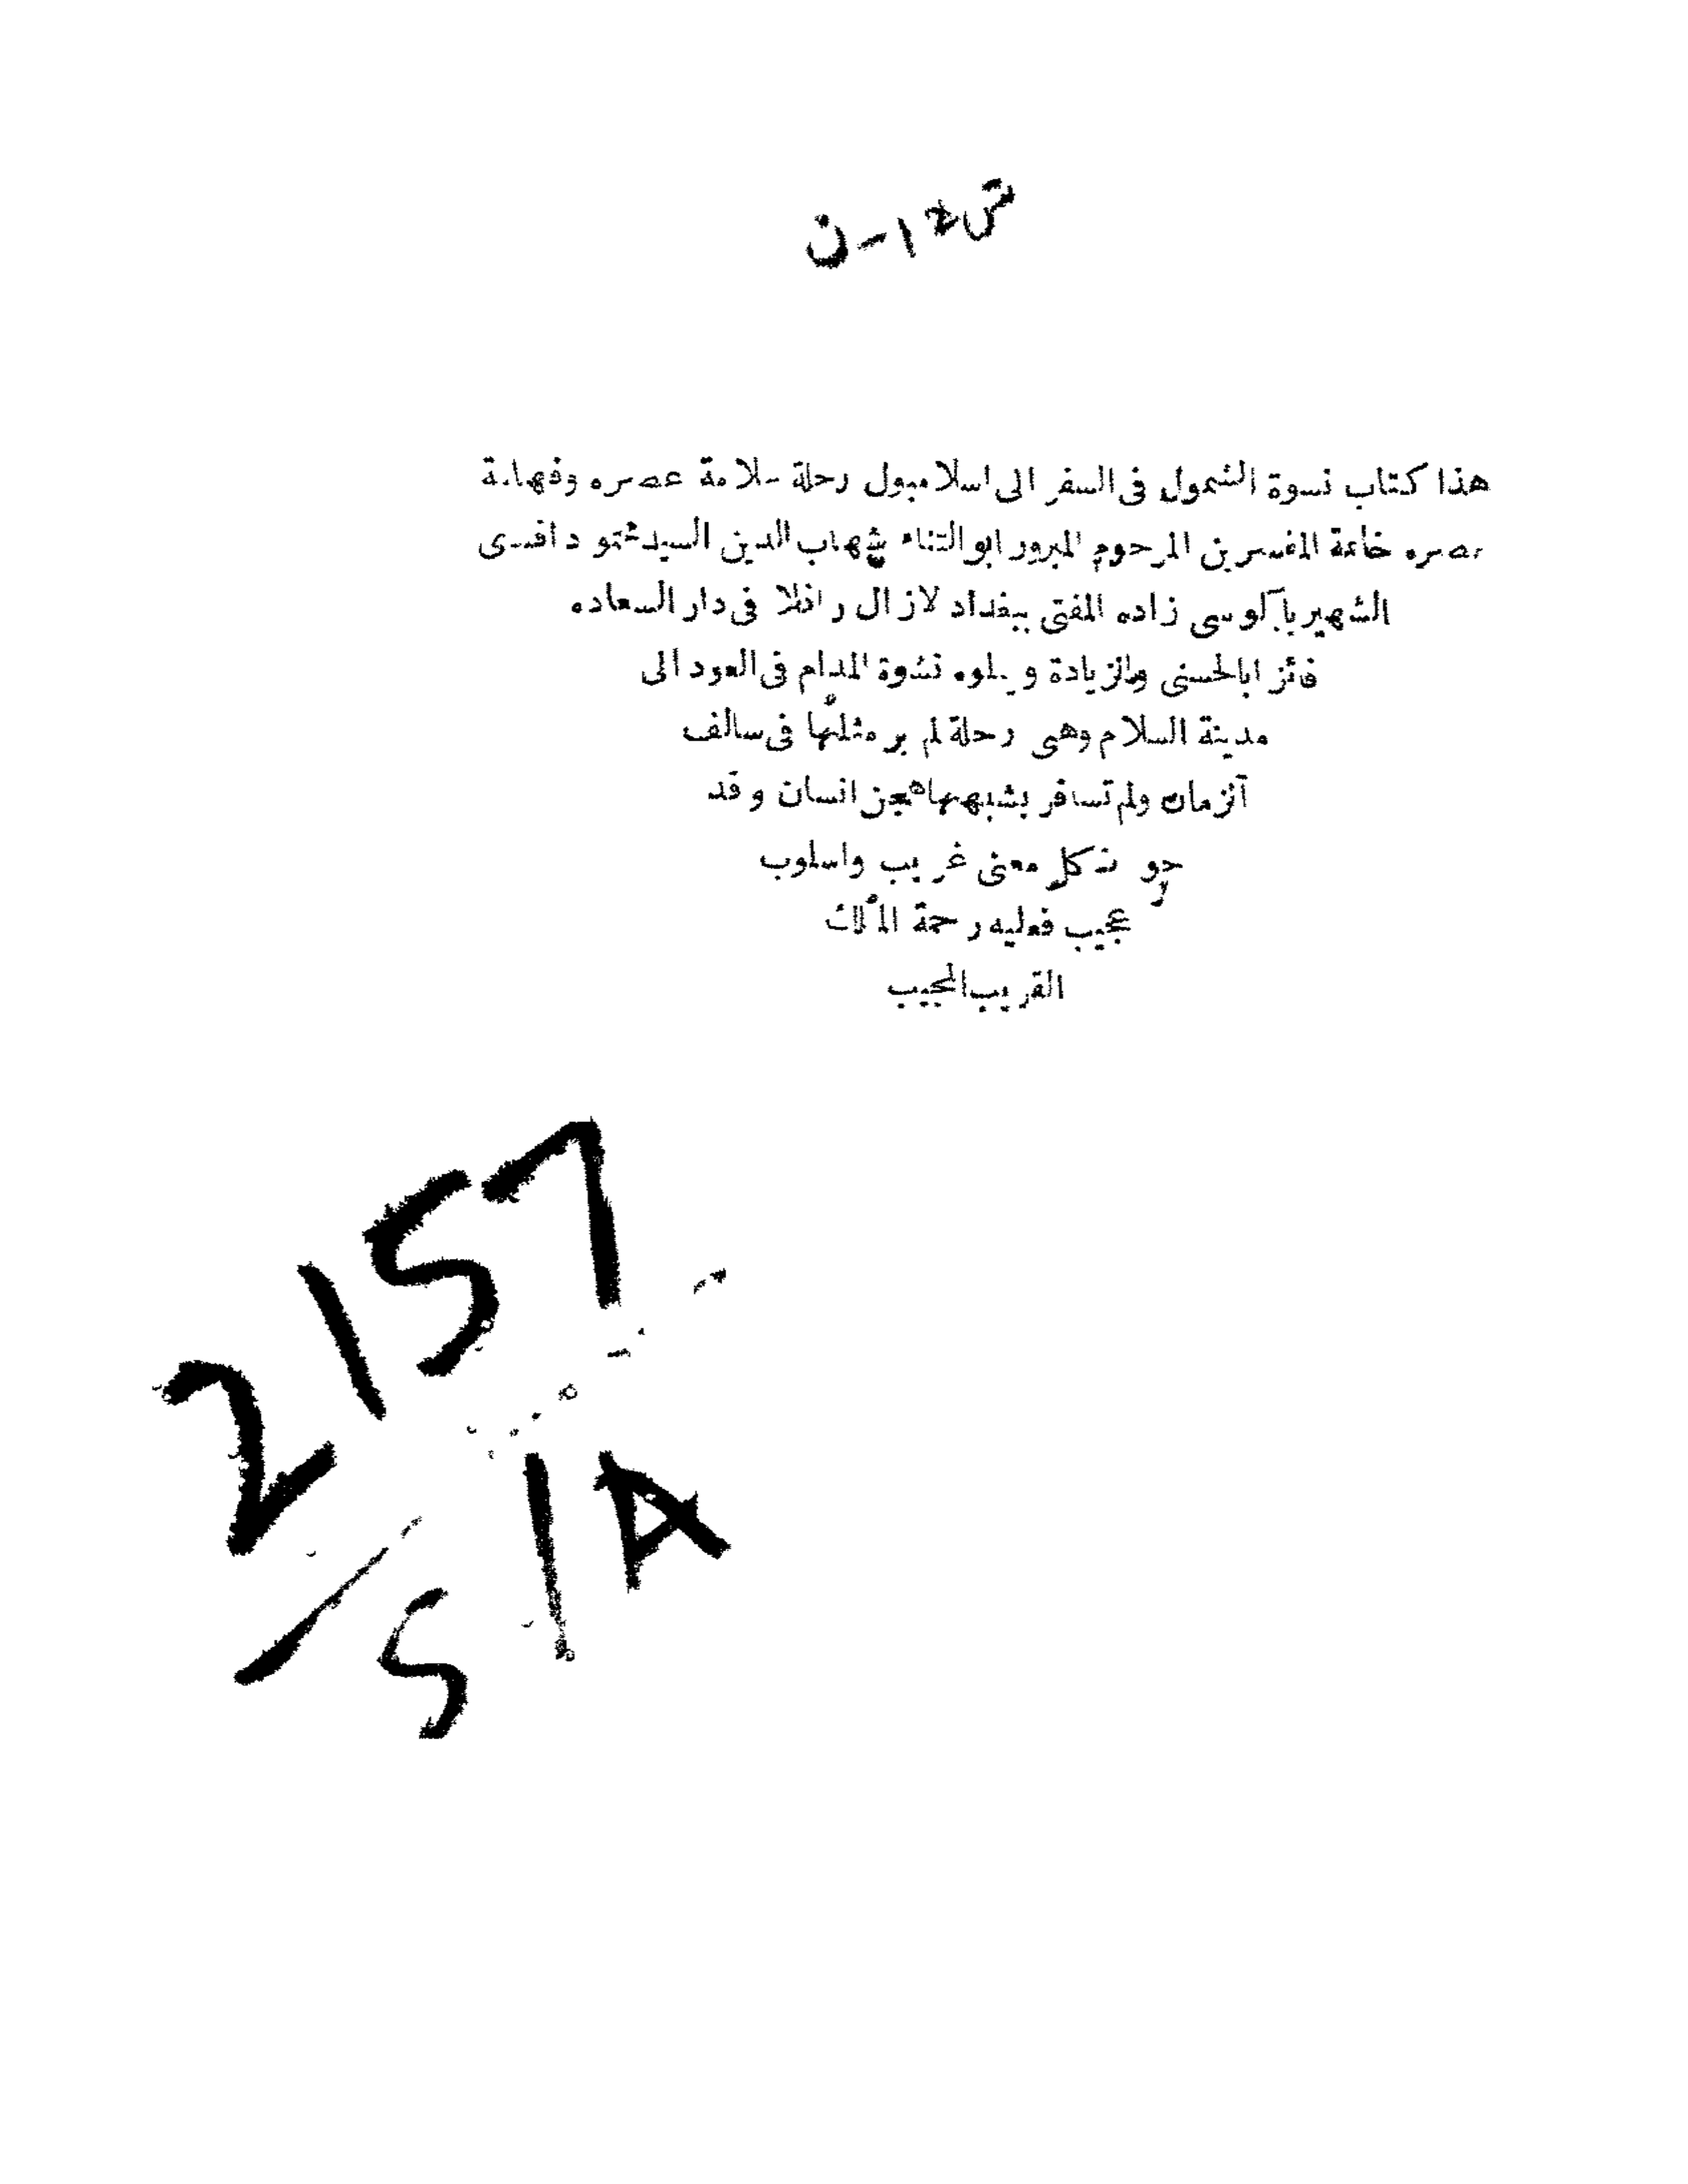 هذا كتاب نسوة الشمول فى السفر الى اسلامبول رحلة علامة عصره وفهامة
مصره خاتمة المفسرين المرحوم المبرور ابو الثناء شهاب الدين السيد محمود افندى
الشهير بآلوسى زاده المفتى ببغداد لازال رافلا فى دار السعاده
فائزا بالحسنى والزيادة ويتلوه نشوة المدام فى العود الى
مدينة السلام وهى رحلة لم ير مثلها فى سالف
الزمان ولم تسافر بشبهها عين انسان وقد
حوت كل معنى غريب واسلوب
عجيب فعليه رحمة الملك
القريب المجيب
2157
S 1A